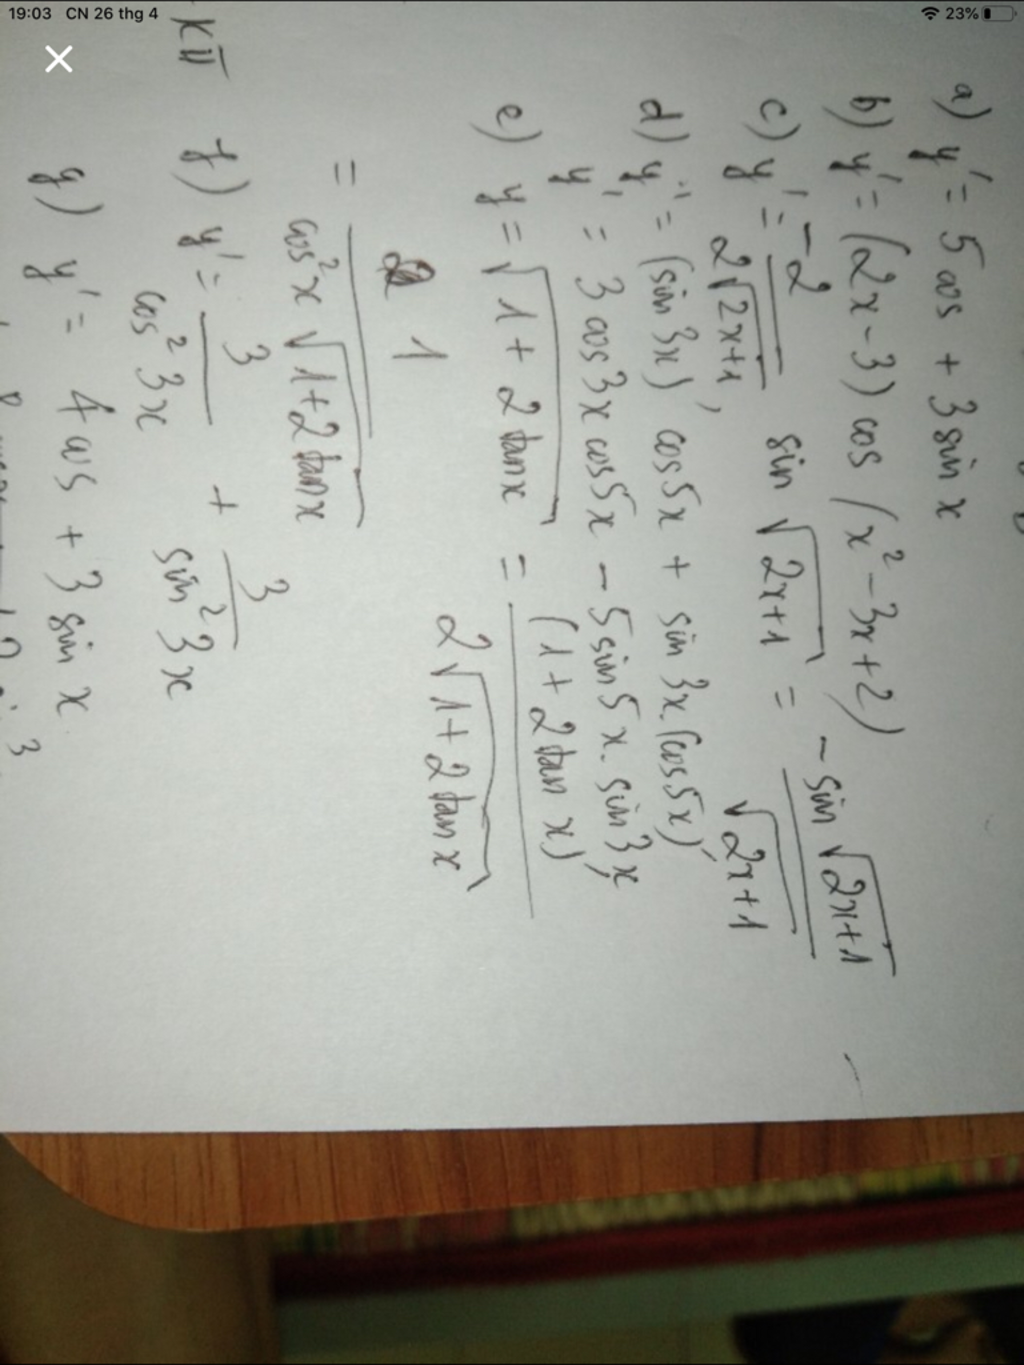 19:03 CN 26 thg 4
23%
a) y' = 5 cos + 3 sin x
b) y' = (2x-3) cos (x² - 3x + 2)
c) y' = -2/2√2x+1 sin √2x+1 = -sin √2x+1/√2x+1
d) y' = (sin 3x)' cos 5x + sin 3x.(cos 5x)'
y' = 3 cos 3x cos 5x - 5 sin 5x. sin 3x
e) y = √1+2tanx = (1+2tan x)'/2√1+2tanx
= 1/cos²x √1+2tanx
KII f) y' = 3/cos² 3x + 3/sin² 3x
g) y' = 4 cos + 3 sin x